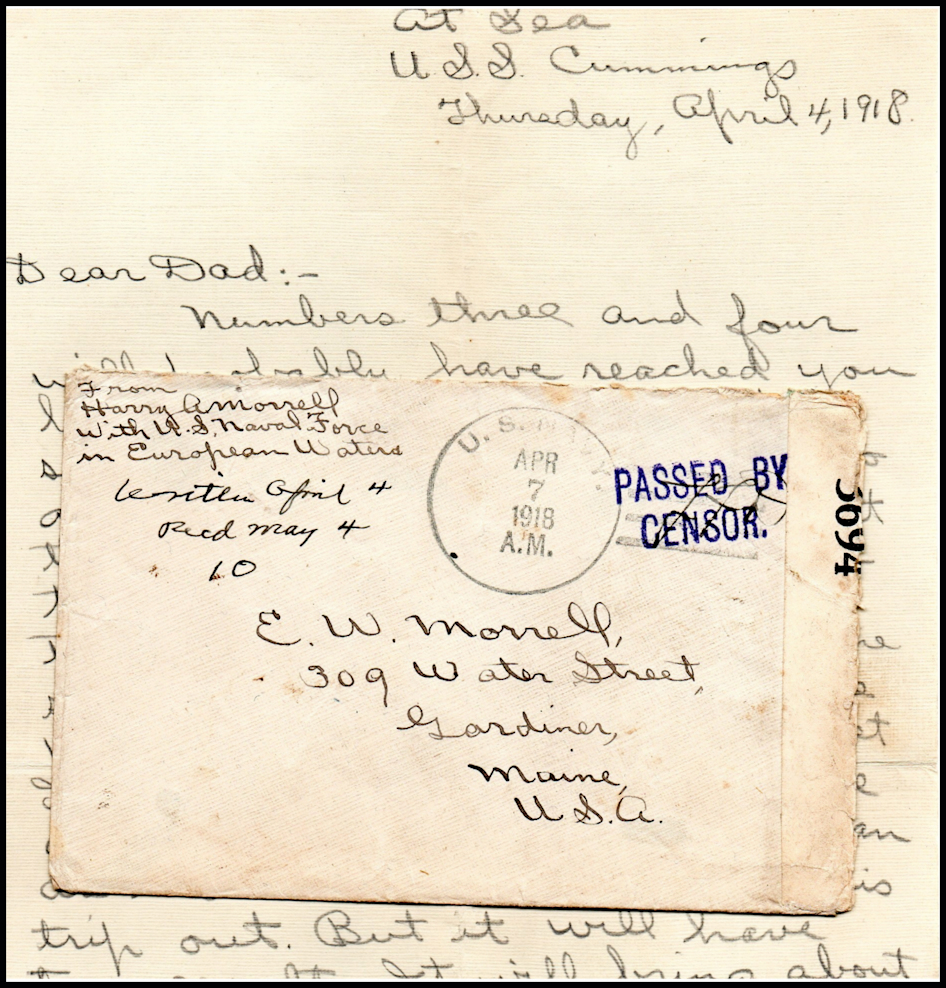 At Sea
U.S.S. Cummings
Thursday, April 4, 1918.
Dear Dad:-
Numbers three and four
have reached you
From
Harry A Morrell
With U.S. Naval Force
in European Waters
written April 4
Recd May 4
10
U.S.
APR
7
1918
A.M.
PASSED BY
CENSOR.
3694
E. W. Morrell,
309 Water Street,
Gardiner,
Maine,
U.S.A.
trip out. But it will have
It will bring about